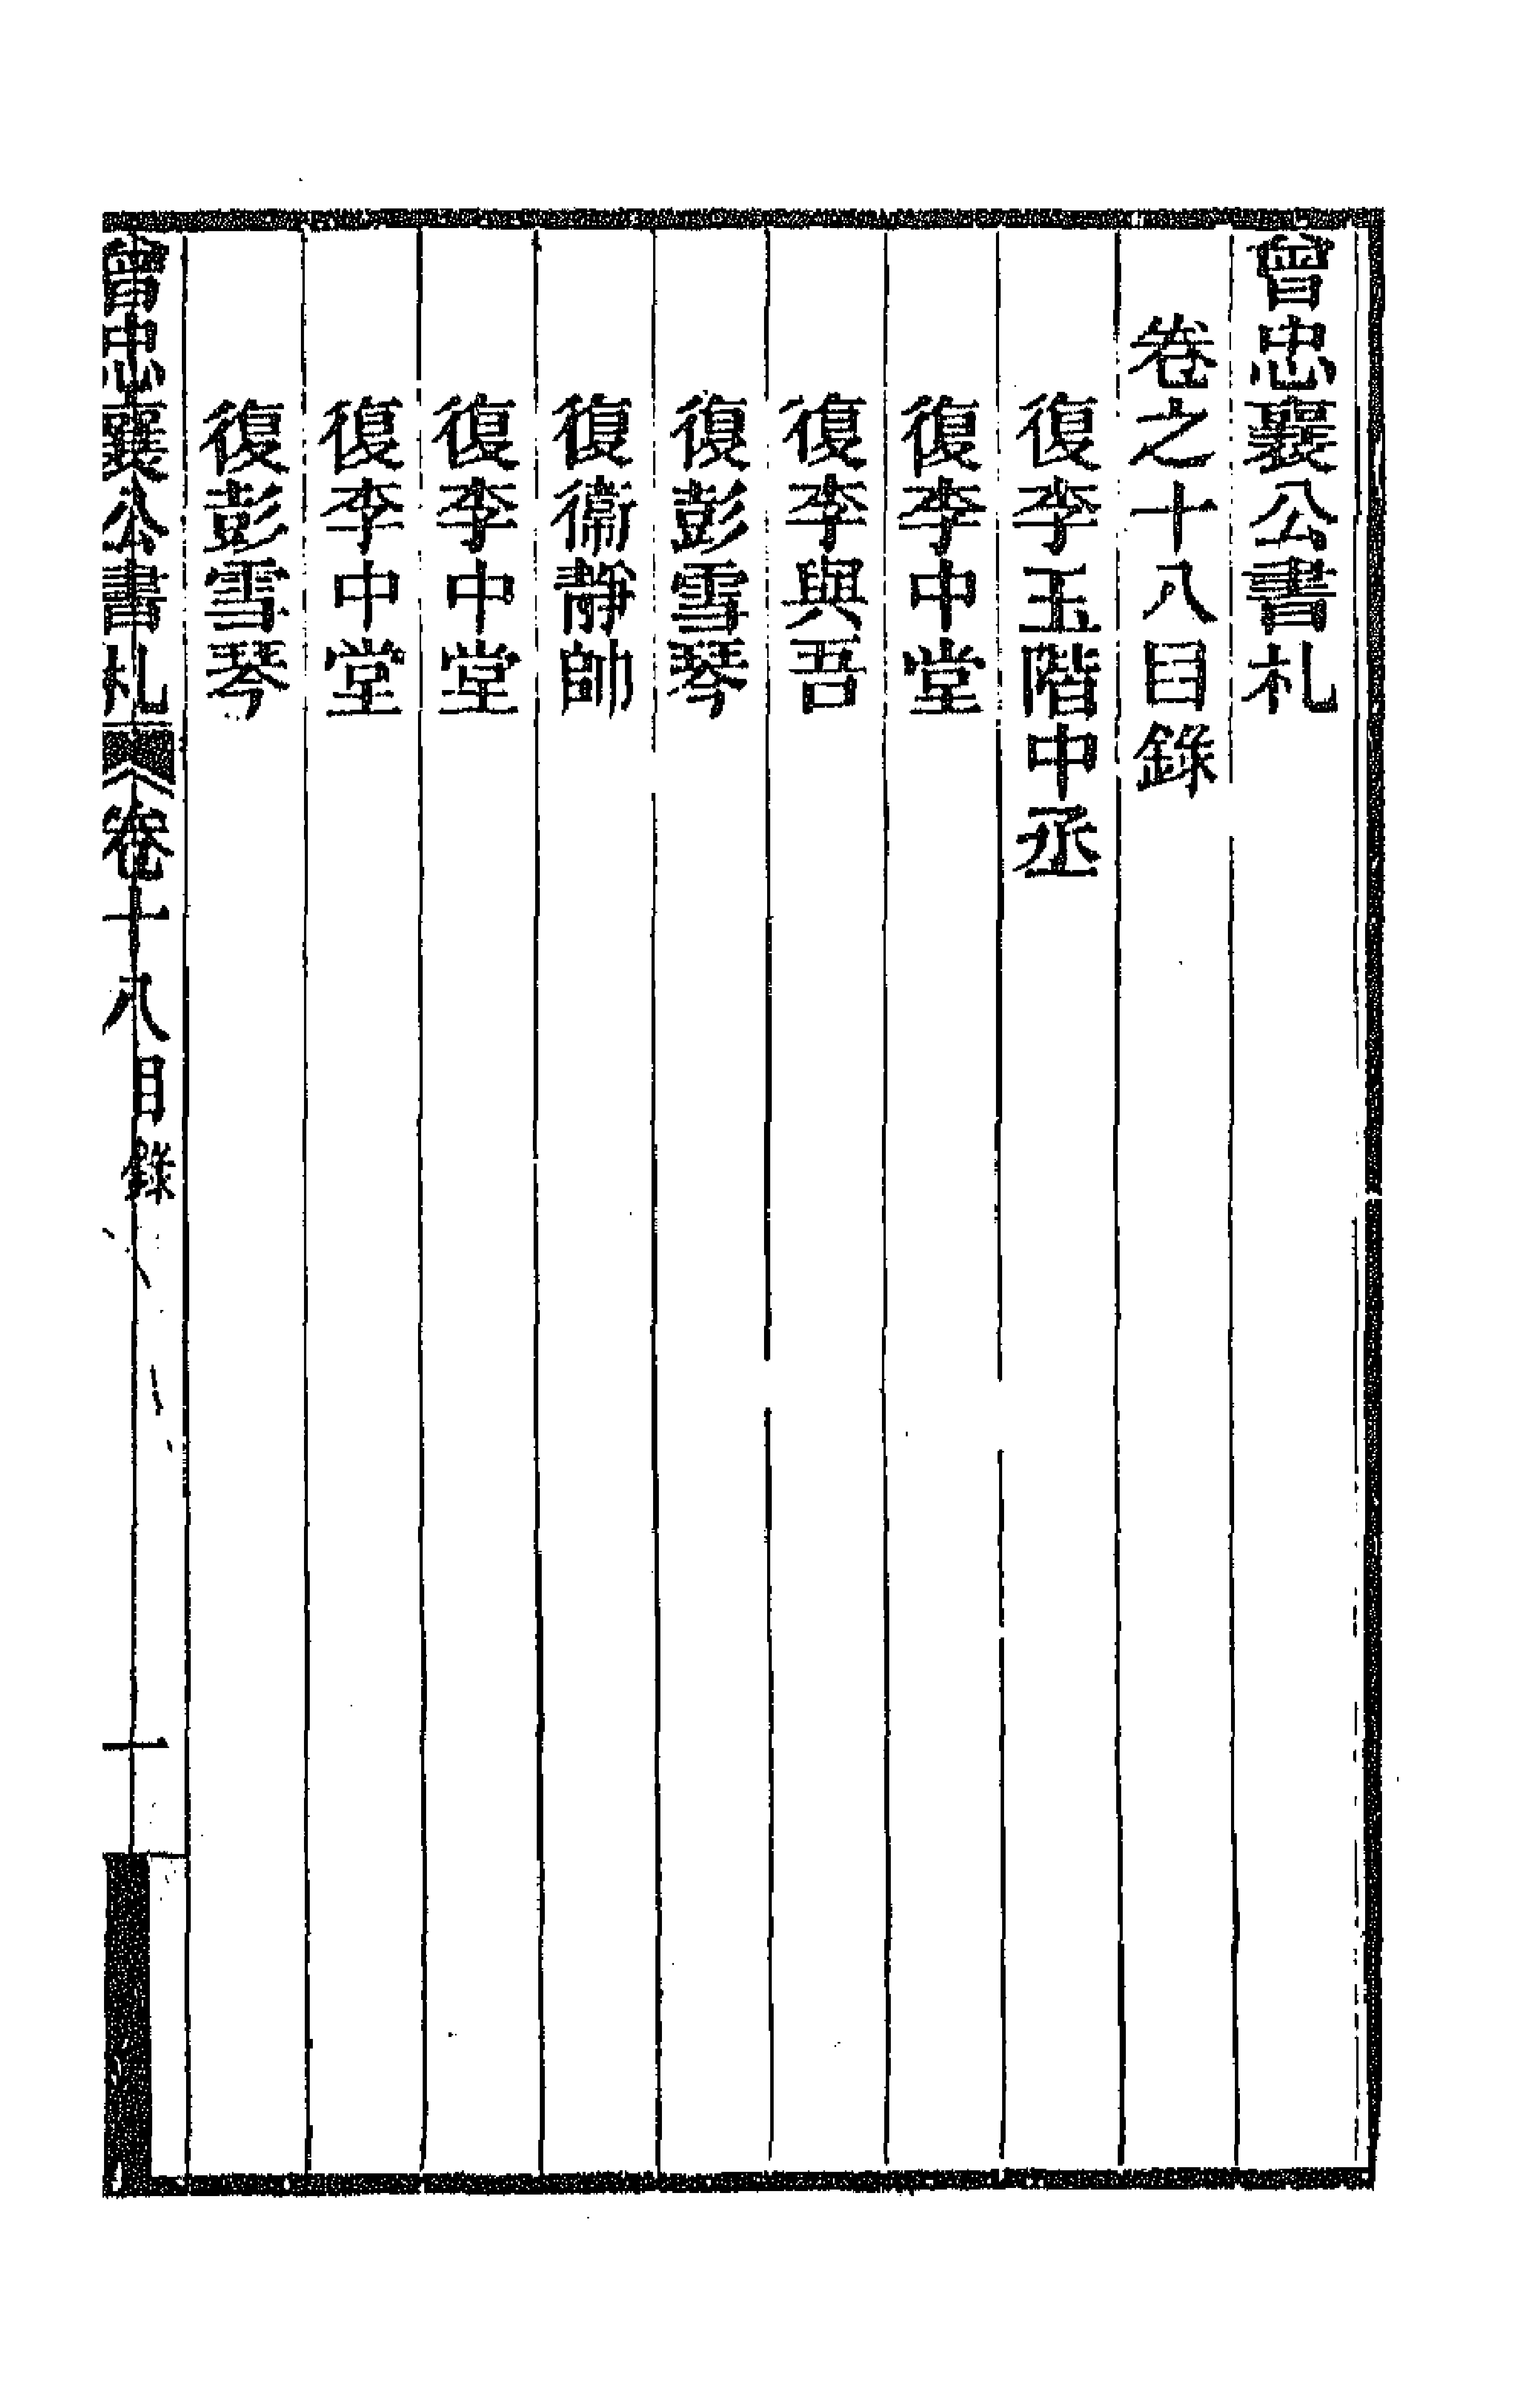 曾忠襄公書札
卷之十八目錄
復李玉階中丞
復李中堂
復李與吾
復彭雪琴
復衞靜帥
復李中堂
復李中堂
復彭雪琴
曾忠襄公書札 卷十八目錄 一